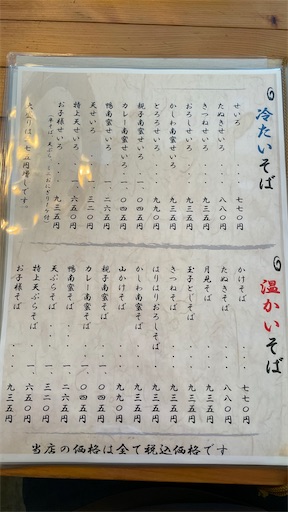 冷たいそば
せいろ・・・・七七〇円
たぬきせいろ・・・八八〇円
きつねせいろ・・・九三五円
おろしせいろ・・・九三五円
かしわ南蛮せいろ・・九三五円
とろろせいろ・・・九九〇円
親子南蛮せいろ・・一、〇四五円
カレー南蛮せいろ・・一、〇四五円
鴨南蛮せいろ・・一、二六五円
天せいろ・・・一、三二〇円
特上天せいろ・・一、六五〇円
お子様せいろ・・・九三五円
七五円増しです。
温かいそば
かけそば・・・七七〇円
たぬきそば・・・八八〇円
月見そば・・・九三五円
玉子とじそば・・・九三五円
きつねそば・・・九三五円
はりはりおろしそば・・九三五円
かしわ南蛮そば・・・九三五円
山かけそば・・・九九〇円
親子南蛮そば・・一、〇四五円
カレー南蛮そば・・一、〇四五円
鴨南蛮そば・・一、二六五円
天ぷらそば・・一、三二〇円
特上天ぷらそば・・一、六五〇円
お子様そば・・・九三五円
当店の価格は全て税込価格です